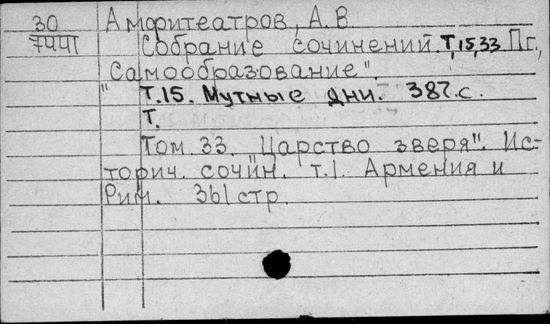 30 Амфитеатров, А.В.
7441 Собрание сочинений. Т,15,33 Пг.,
"Самообразование".
Т.15. Мутные дни. 387.с.
Т.
Том 33. "Царство зверя". Ис-
торич. сочин. т.1. Армения и
Рим. 361 стр.